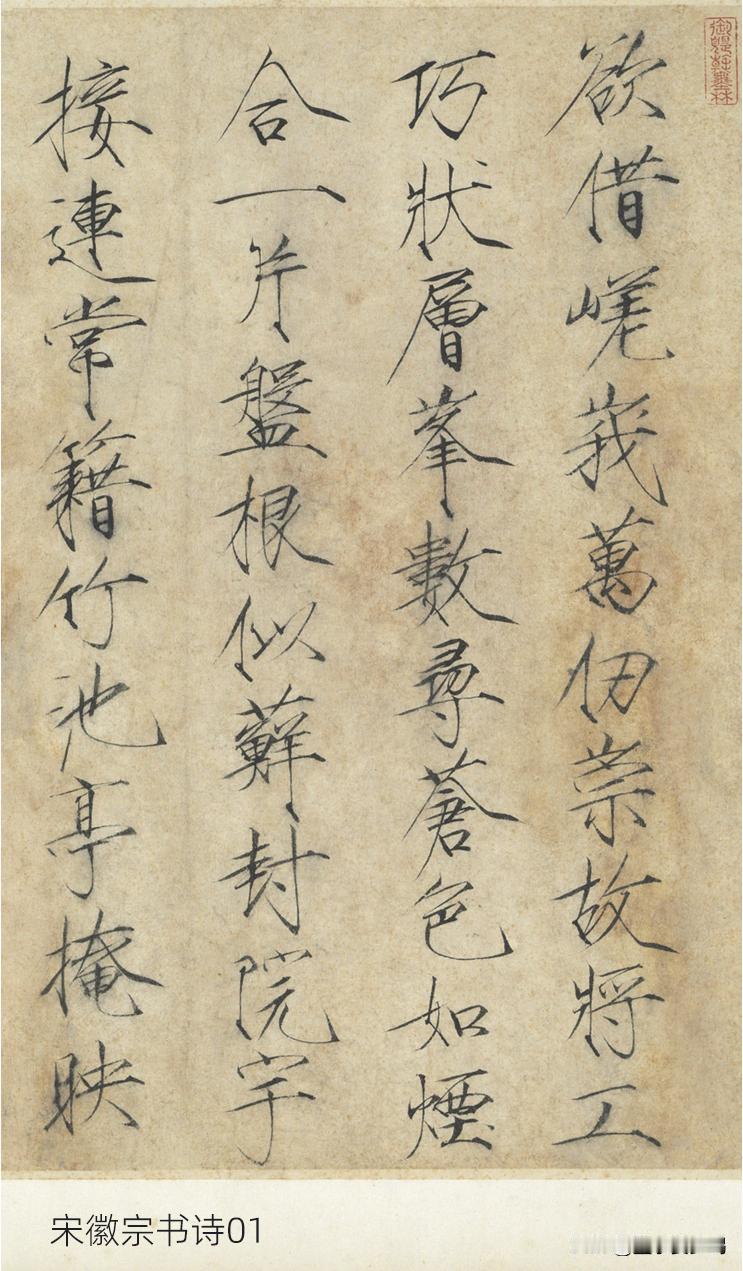 欲借嵯峩萬仞崇故將工
巧狀層峯數尋蒼色如煙
合一片盤根似蘚封院宇
接連常籍竹池亭掩映
宋徽宗书诗01